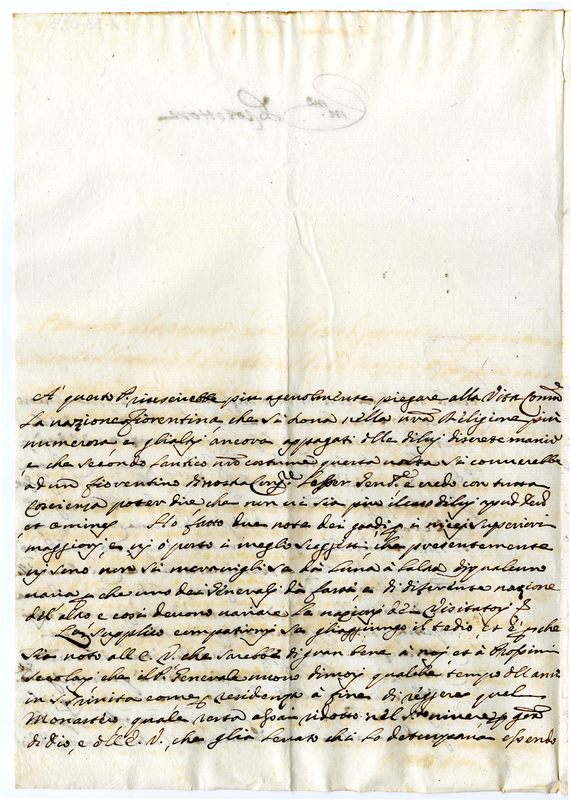 A questo P. riuscirebbe piu agevolmente piegare alla Vita Comē
La nazione fiorentina, che si trova nella nrā Religione piu
numerosa e gli altri ancora appagati delle di lui discrete maniere
e che secondo l'antico nrō costume questa volta si converrebbe
ad un fiorentino di nostra Congne l'esser Genle e credo con tutta
Coscienza poter dire che non ci sia
et Ho fatto due note dei gradi, e i nuovi superiori
maggiori, e vi ò posto i meglio soggetti, che presentemente
vi sono non si meravigli se da una à l'altra di qualcuno
varia, che uno dei Generali da farsi e di diferente nazione
dell'altro e così devono variare le nazioni dei Visitatori
La supplico compatirmi se gli aggiungo il tedio, et è che
sia noto all'E. V. che sarebbe di gran bene à noi, et à Prossimi
secolari che il P. Generale nuovo dimori qualche tempo dell'anno
in S. Trinita come residenza a fine di reggere quel
Monastero quale resta ridotto nel vivere gra
di Dio, e dell'E. V., che gli à levato chi lo deturpava essendo